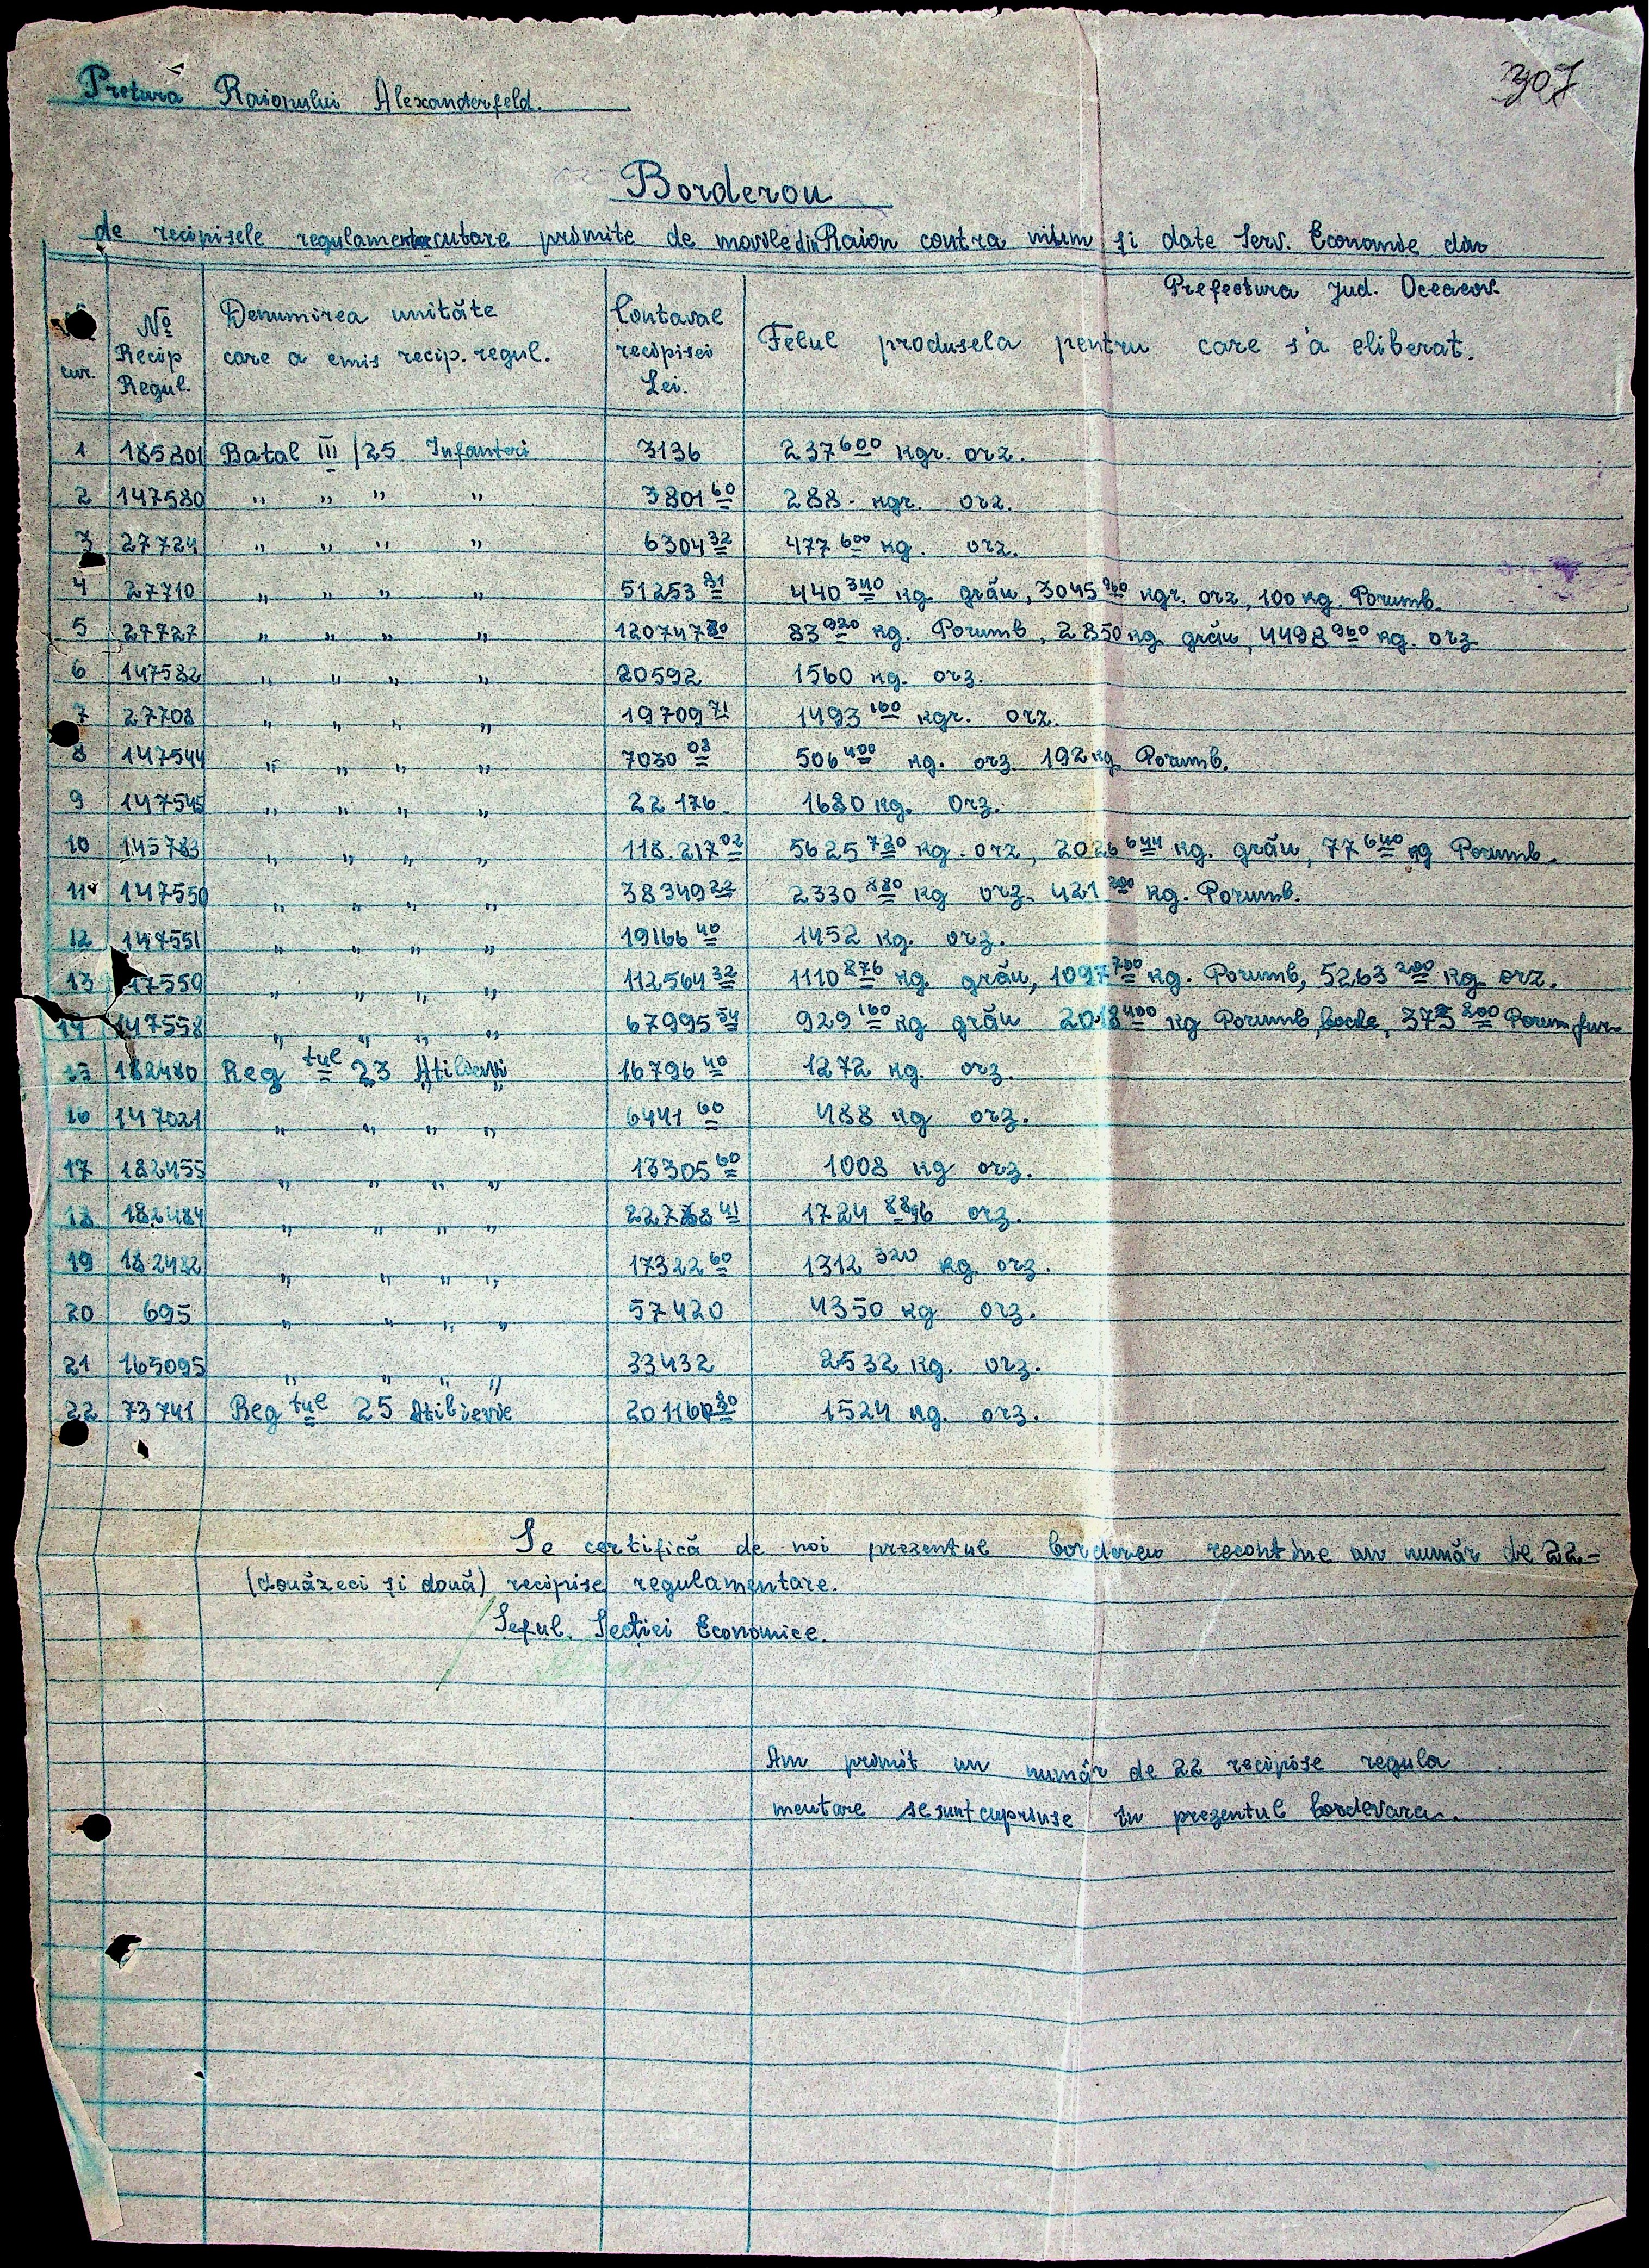 307
Pretura Raionului Alexanderfeld.
Borderou
de recipisele regulamentare primite de din Raion contra și date Serv. Economie din
Prefectura jud. Oceacov.
cur. | Nº Recip Regul. | Denumirea unităte care a emis recip. regul. | Contaval recipisei Lei. | Felul produsela pentru care s'a eliberat.
1 185801 Batal III /25 Infanteri 3136 237 600 kgr. orz.
2 147580 " " " " 3801 60 288 - kgr. orz.
3 27724 " " " " 6304 32 477 600 kg. orz.
4 27710 " " " " 51253 81 440 340 kg grău, 3045 960 kgr. orz, 100 kg. Porumb.
5 27727 " " " " 120747 80 83 920 kg. Porumb, 2850 kg grău, 4498 960 kg. orz
6 147582 " " " " 20592 1560 kg. orz.
7 27708 " " " " 19709 71 1493 160 kgr. orz.
8 147544 " " " " 7030 08 506 400 kg. orz 192 kg Porumb.
9 147545 " " " " 22 176 1680 kg. orz.
10 145783 " " " " 118.217 02 5625 720 kg. orz, 2026 644 kg. grău, 77 640 kg Porumb.
11 147550 " " " " 38349 22 2330 880 kg orz. 421 200 kg. Porumb.
12 147551 " " " " 19166 40 1452 kg. orz.
13 47550 " " " " 112564 32 1110 876 kg. grău, 1097 700 kg. Porumb, 5263 200 kg orz.
14 147558 " " " " 67995 54 929 160 kg grău 2018 400 kg Porumb bocle, 373 200 Porum fur
15 182480 Reg tul 23 Atilierii 16796 40 1272 kg. orz.
16 147021 " " " " 6441 60 488 kg orz.
17 182455 " " " " 13305 60 1008 kg orz.
18 182484 " " " " 22768 41 1724 88 orz.
19 182482 " " " " 17322 60 1312 320 kg orz.
20 695 " " " " 57420 4350 kg orz.
21 165095 " " " " 33432 2532 kg. orz.
22 73741 Reg tul 25 Atilierie 201160 80 1524 kg. orz.
Se certifică de noi prezentul bordereu un număr de 22=
(douăzeci și două) recipise regulamentare.
Șeful Secției Economice.
Am primit un număr de 22 recipise regula
mentare se sunt cuprinse în prezentul